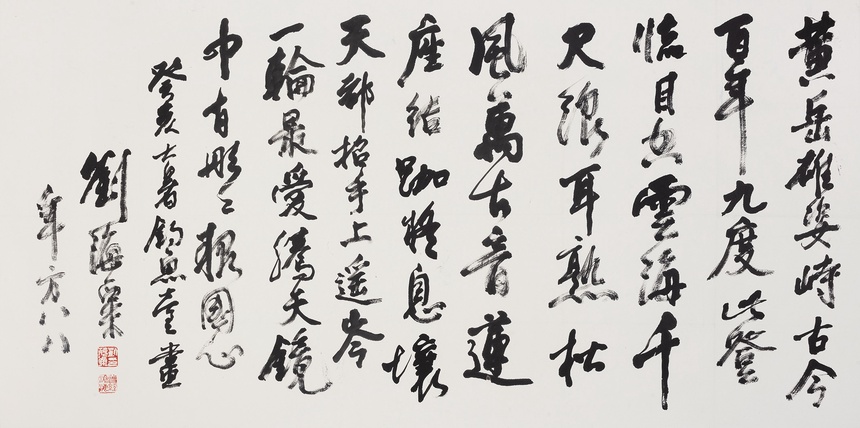 黄岳雄姿峙古今
百年九度此登
臨目空雲海千
尺浪耳熟松
風萬古音蓮
座結跏息壤
天都招手上遥岑
一輪最愛騰天鏡
中有彤〻報國心
癸亥大暑釣魚臺畫
劉海粟
年方八八